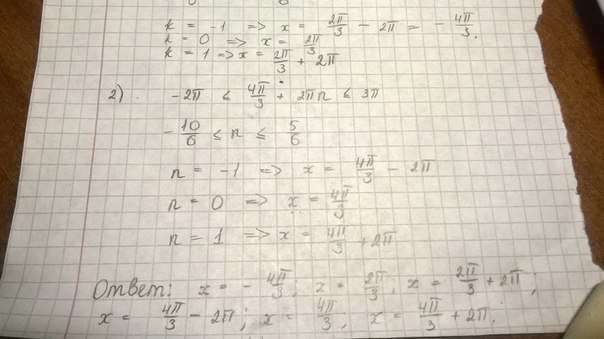 k = -1 => x = 2π/3 - 2π = - 4π/3.
k = 0 => x = 2π/3
k = 1 => x = 2π/3 + 2π
2) -2π ≤ 4π/3 + 2πn ≤ 3π
-10/6 ≤ n ≤ 5/6
n = -1 => x = 4π/3 - 2π
n = 0 => x = 4π/3
n = 1 => x = 4π/3 + 2π
Ответ: x = - 4π/3; x = 2π/3; x = 2π/3 + 2π;
x = 4π/3 - 2π; x = 4π/3, x = 4π/3 + 2π.